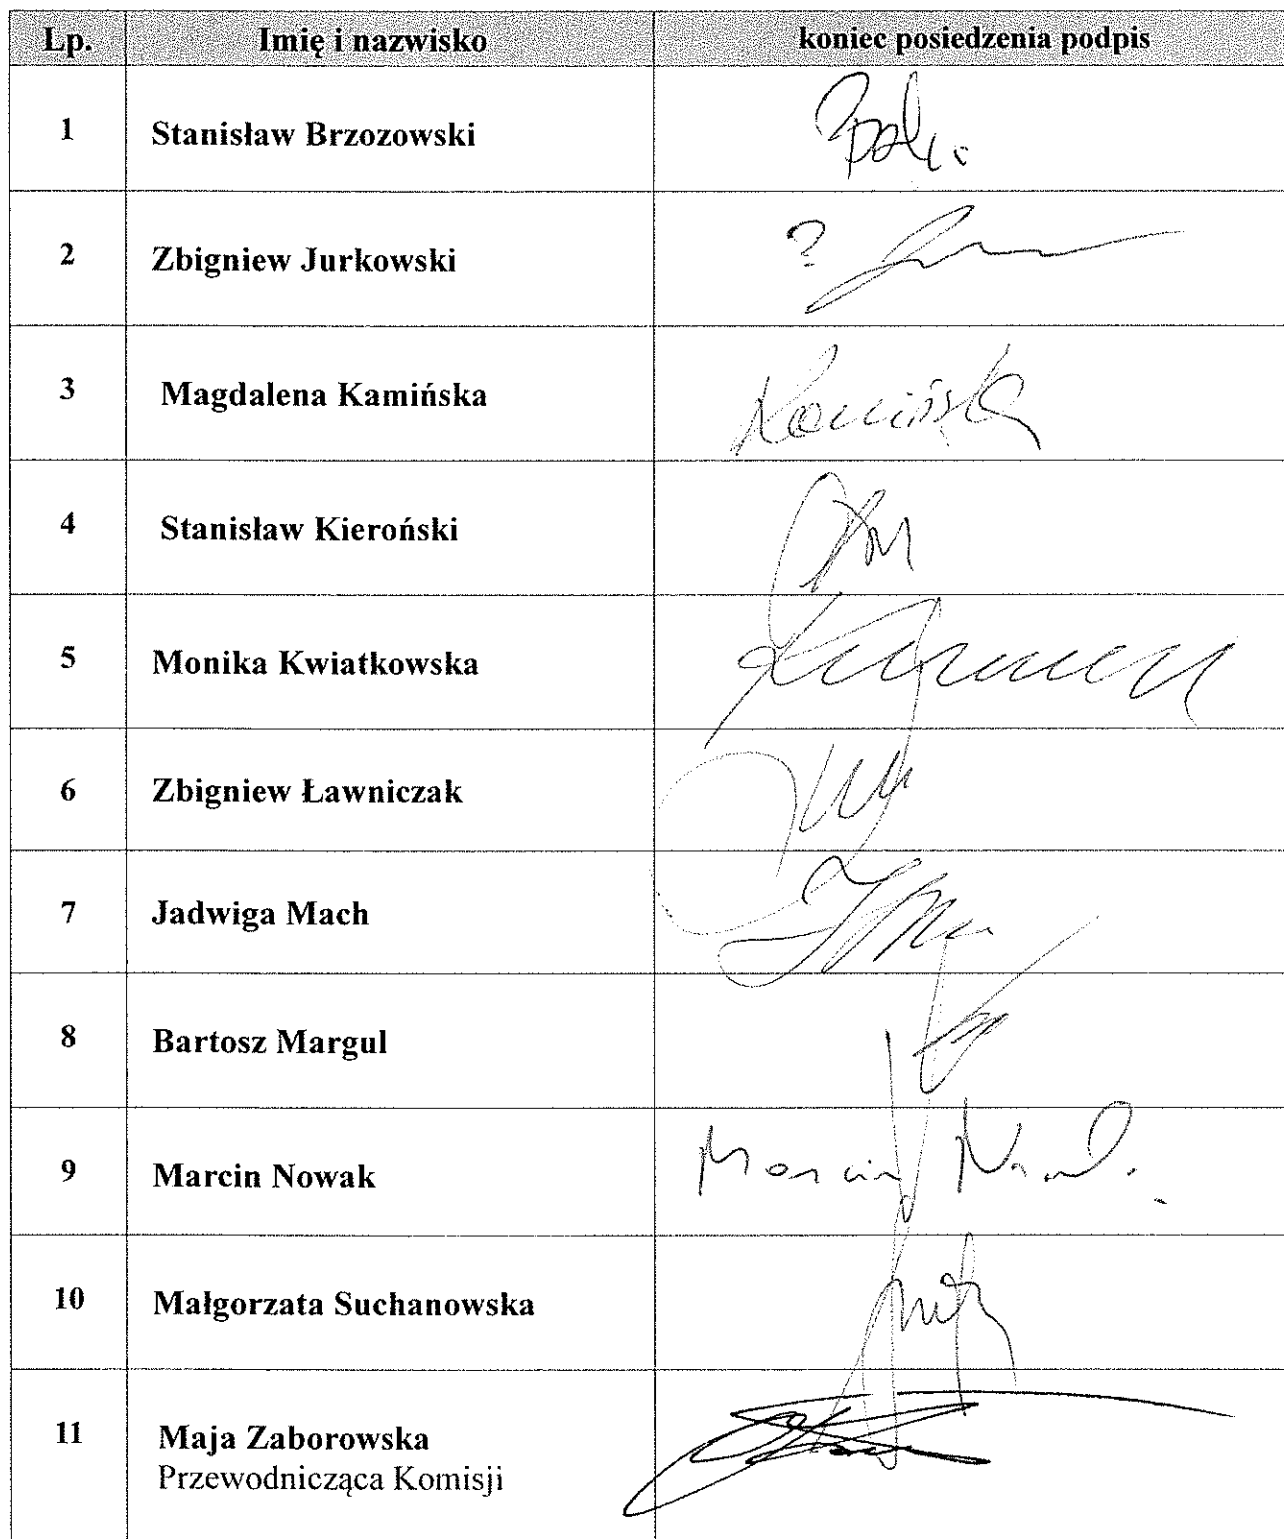 Lp. Imię i nazwisko koniec posiedzenia podpis
1 Stanisław Brzozowski
2 Zbigniew Jurkowski ?
3 Magdalena Kamińska Kamińska
4 Stanisław Kieroński
5 Monika Kwiatkowska
6 Zbigniew Ławniczak
7 Jadwiga Mach
8 Bartosz Margul
9 Marcin Nowak Marcin Nowak
10 Małgorzata Suchanowska
11 Maja Zaborowska
Przewodnicząca Komisji